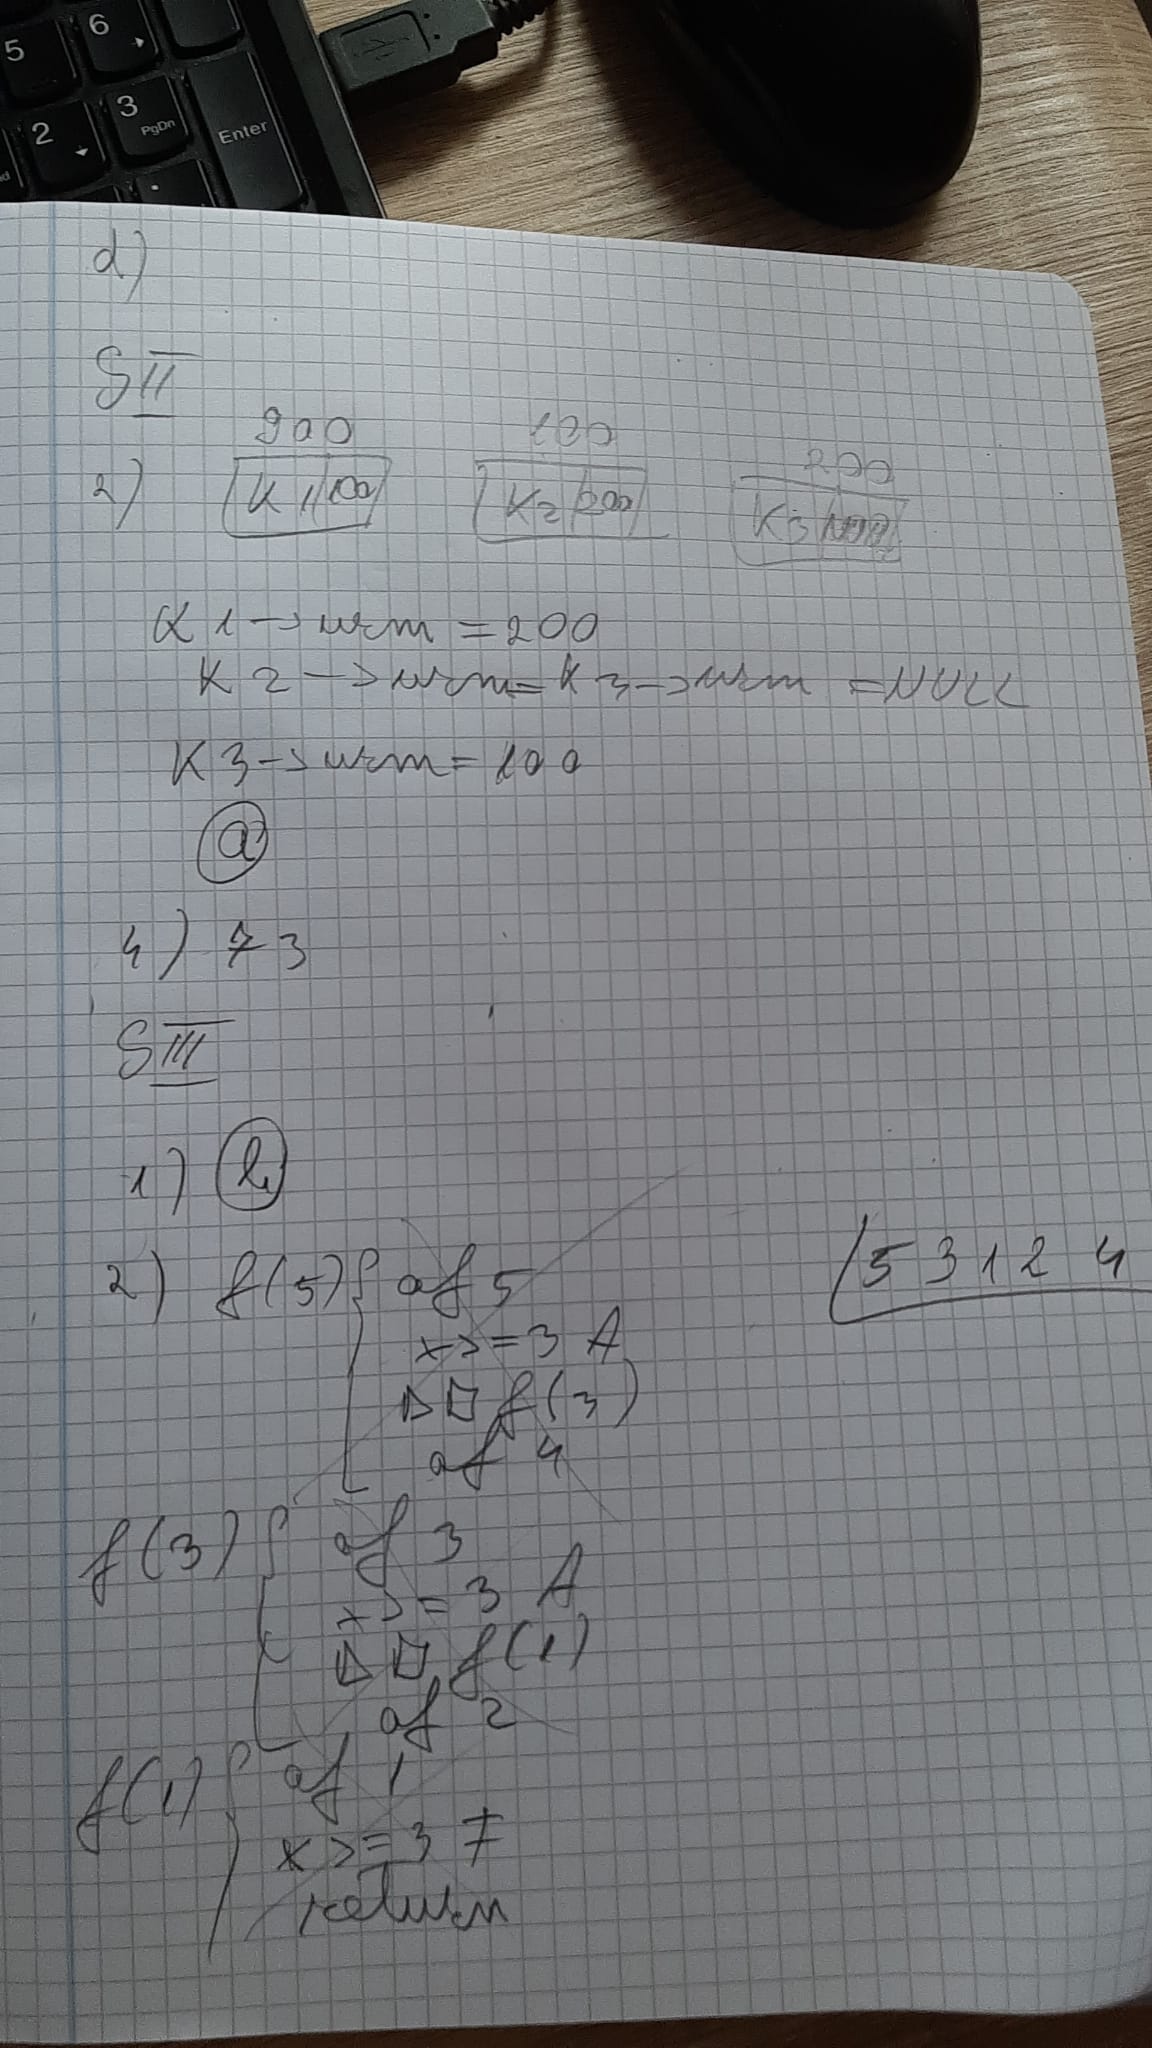 5
6
2
3
PgDn
Enter
d)
SII
900 100 200
2) K1 100 K2 200 K3
K1->urm = 200
K2->urm=K3->urm =NULL
K3->urm= 100
a
4) 73
SIII
1) b
2) f(5){ af 5
5 3 1 2 4
x>=3 A
f(3)
af 4
f(3){ af 3
x>=3 A
f(1)
af 2
f(1){ af 1
x>=3 F
return